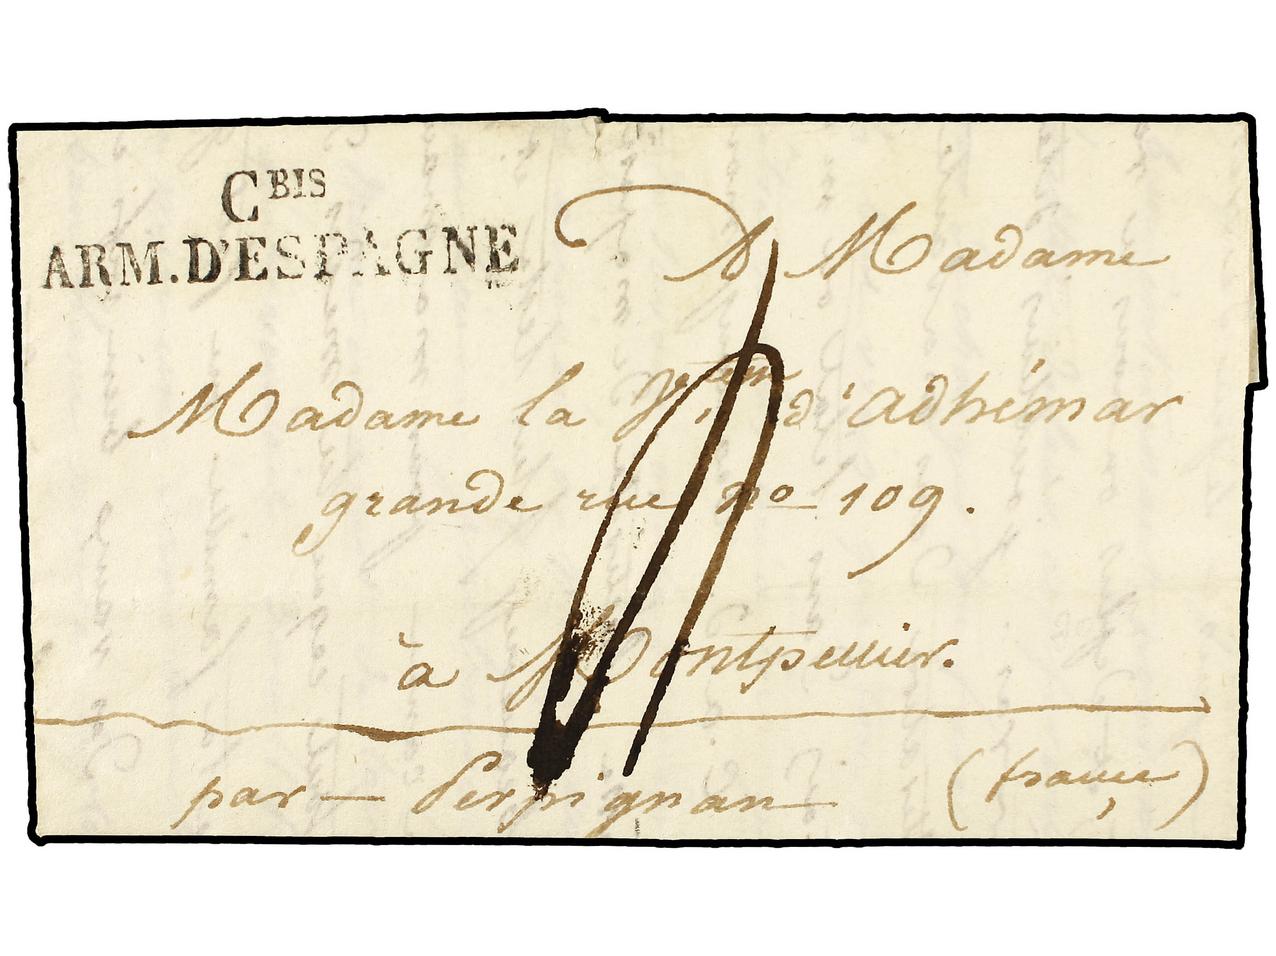 C BIS
ARM. D'ESPAGNE
A Madame
Madame la V.tesse d'adhémar
grande rue no 109.
à Montpellier.
par — Perpignan
(france)